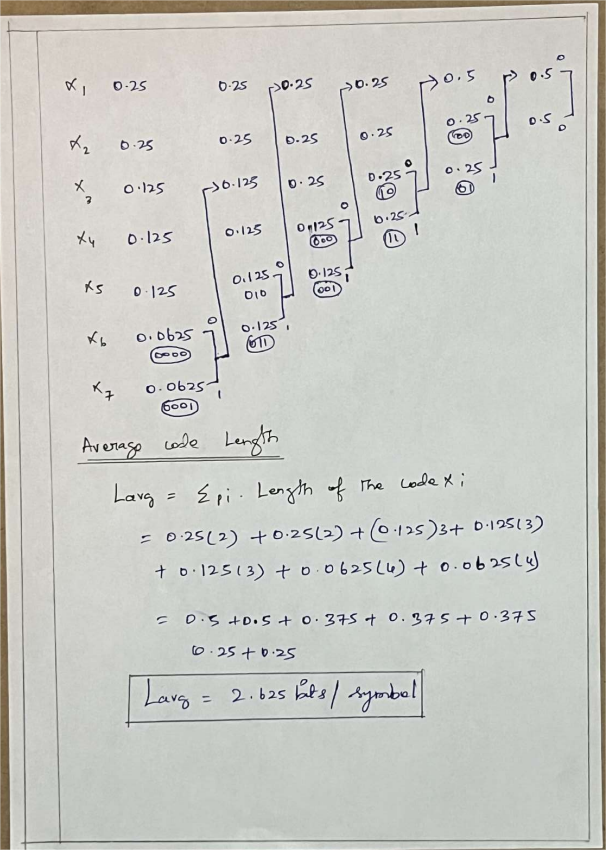 0
x1 0.25 0.25 0.25 0.25 0.5 0.5
0
x2 0.25 0.25 0.25 0.25 0.25 0.5 0
00
x3 0.125 0.125 0.25 0.25 0 0.25 1
10 01
0
x4 0.125 0.125 0.125 0.25 1
000 11
0
x5 0.125 0.125 0.125 1
010 001
0
x6 0.0625 0.125 1
0000 011
x7 0.0625 1
0001
Average code Length
Lavg = Σpi. Length of the code xi
= 0.25(2) + 0.25(2) + (0.125)3 + 0.125(3)
+ 0.125(3) + 0.0625(4) + 0.0625(4)
= 0.5 + 0.5 + 0.375 + 0.375 + 0.375
0.25 + 0.25
Lavg = 2.625 bits/symbol